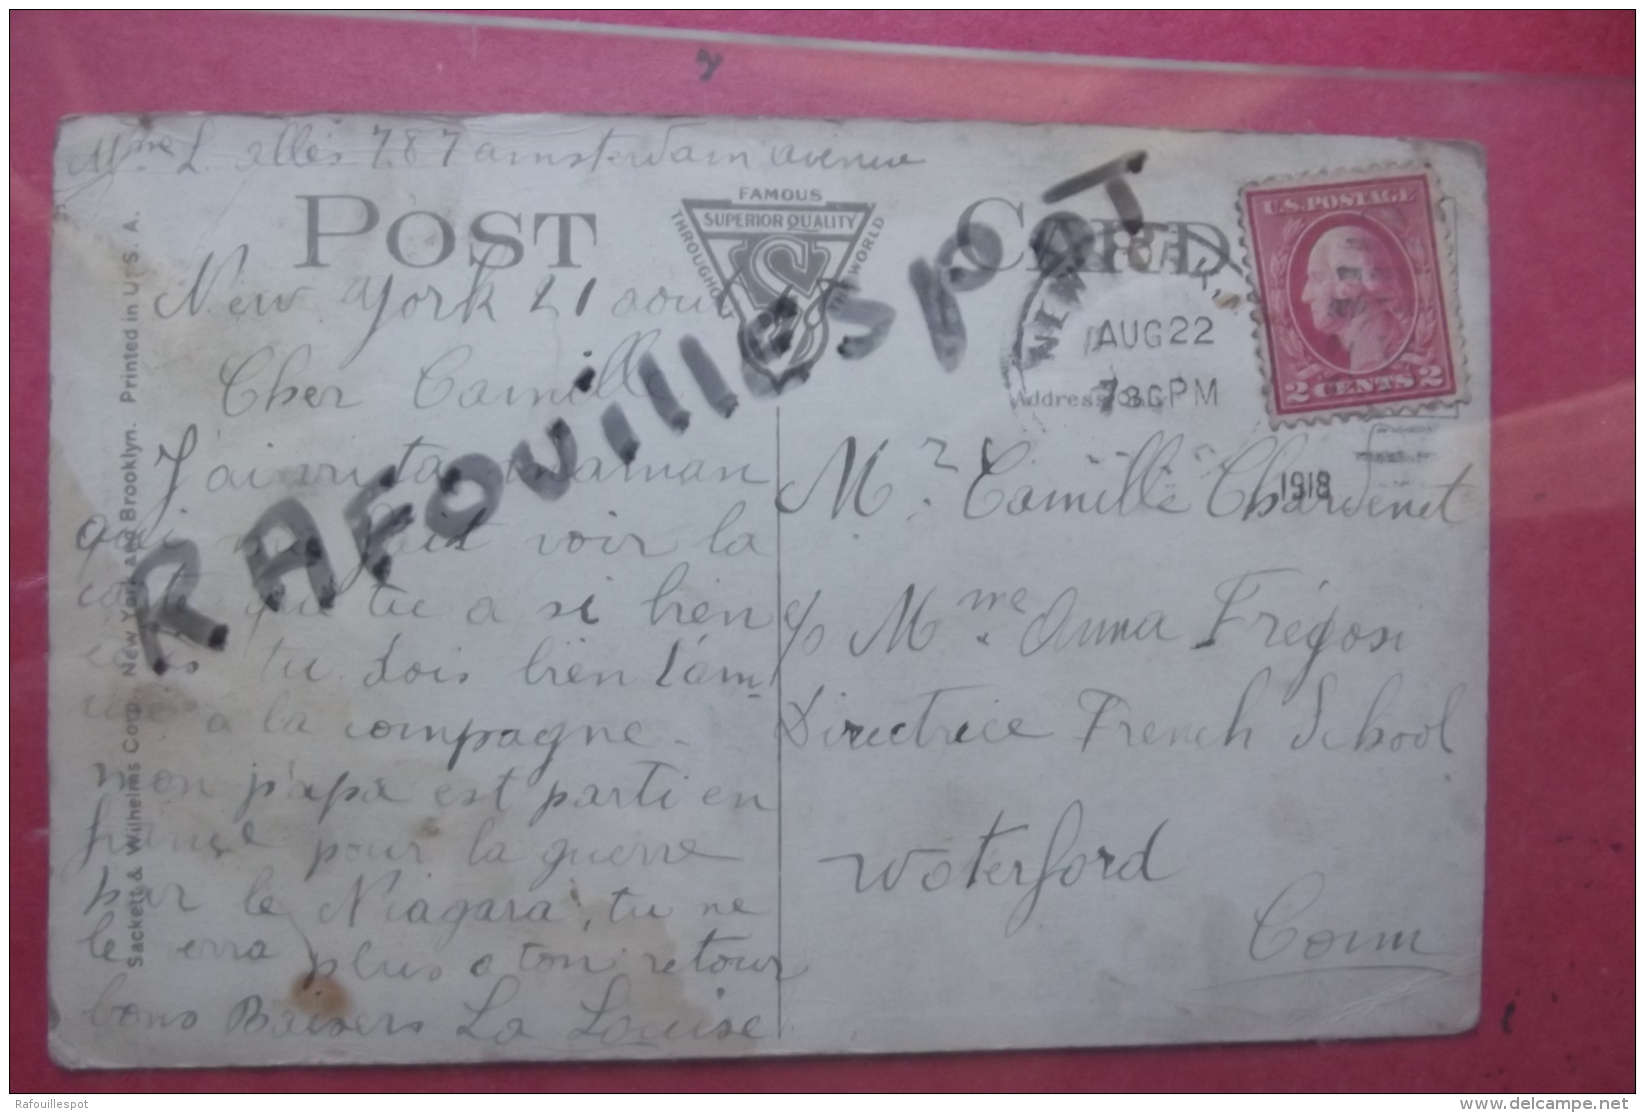 Mme L. allès 787 amsterdam avenue
POST CARD
FAMOUS
SUPERIOR QUALITY
THROUGHOUT THE WORLD
S
New York 21 aout
Cher Camille
J'ai vu ta maman
qui me fait voir la
carte que tu a si bien
tu dois bien t'am
à la compagne.
mon papa est parti en
françe pour la guerre
par le Niagara, tu ne
le verra plus a ton retour
bons Baisers La Louise
Sackett & Wilhelms Corp. New York and Brooklyn. Printed in U. S. A.
RAFOUILLESPOT
NEW YORK, N
AUG 22
730PM
1918
Address
U.S. POSTAGE
2 CENTS 2
Mr. Camille Chardenet
c/o Mme. Anna Frégosi
Directrice French School
Waterford
Conn
Rafouillespot
www.delcampe.net